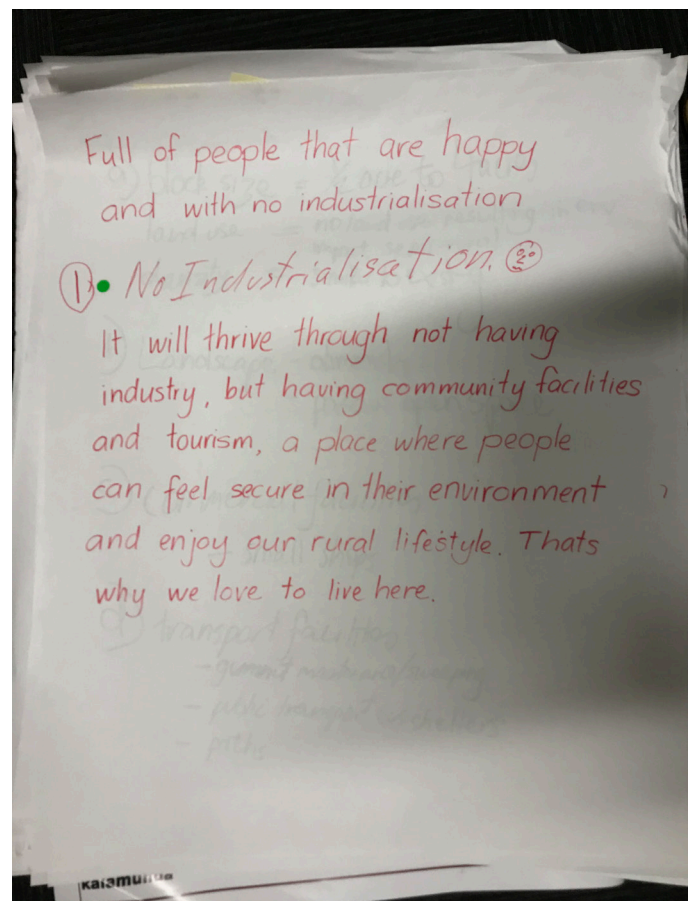 Full of people that are happy
and with no industrialisation
1) No Industrialisation.
It will thrive through not having
industry, but having community facilities
and tourism, a place where people
can feel secure in their environment
and enjoy our rural lifestyle. Thats
why we love to live here.
transport facilities
- public transport
- paths